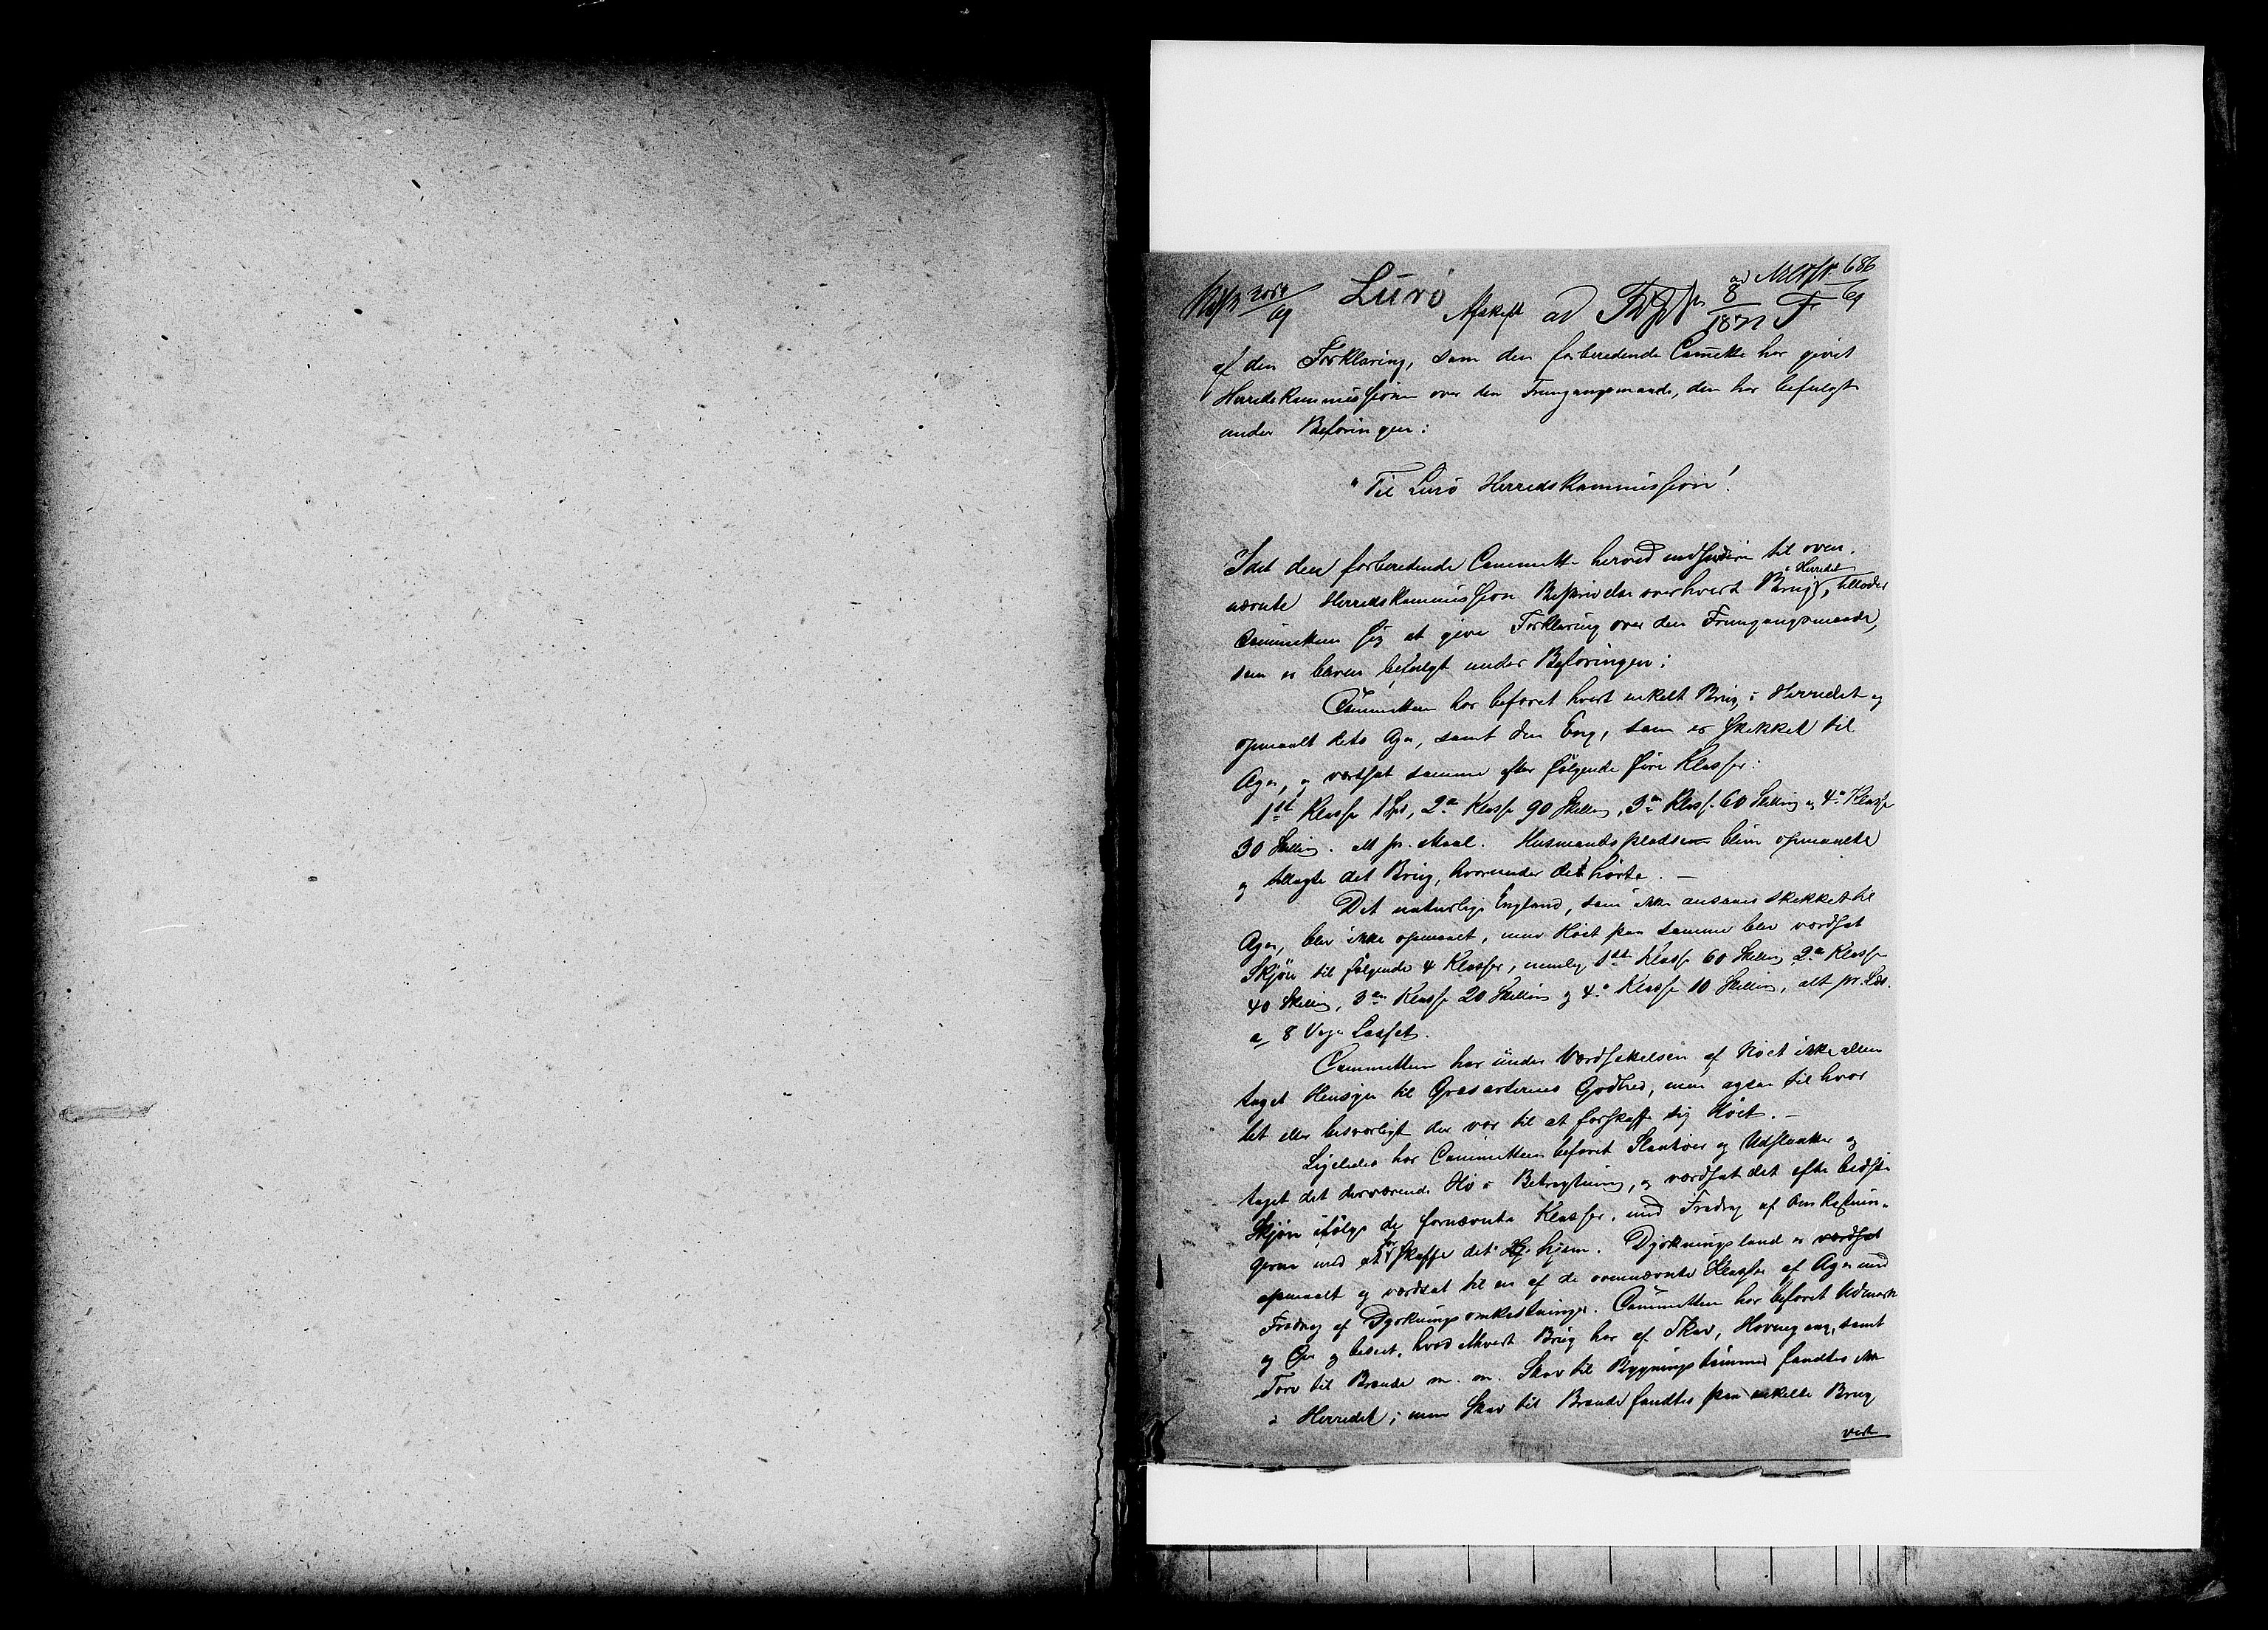 Lurø
Afskrift ad
686
69
8
1871 F
af den Forklaring, som den forberedende Comitte har givet
Herredskommissionen over den Fremgangsmaade, den har befulgt
under Befaringen:
"Til Lurø Herredskommission!
Idet den forberedende Committe herved indsender til oven-
nævnte Herredskommission Beskrivelse over hvert Brug i Herredet, tillader
Committeen sig at give Forklaring over den Fremgangsmaade,
som er bleven befulgt under Befaringen:
Committeen har befaret hvert enkelt Brug i Herredet og
opmaalt dets Ager, samt den Eng, som er skikket til
Ager, og værdsat samme efter følgende fire Klasser:
1ste Klasse 1 Spd, 2den Klasse 90 Skilling, 3die Klasse 60 Skilling og 4de Klasse
30 Skilling. alt pr. Maal. Husmandspladse bleve opmaalte
og tillagte det Brug, hvorunder det hørte. —
Det naturlige England, som ikke ansaaes skikket til
Ager, blev ikke opmaalt, men Høet paa samme blev værdsat
Skjøn til følgende 4 Klasser, nemlig 1ste Klasse 60 Skilling 2den Klasse
40 Skilling, 3die Klasse 20 Skilling og 4de Klasse 10 Skilling, alt pr. Læs.
a 8 Voger Læsset.
Committeen har under Værdsættelsen af Høet ikke allene
taget Hensyn til Græsarternes Godhed, men ogsaa til hvor
let eller besværligt der var til at forskaffe sig Høet. —
Ligeledes har Committeen befaret Slaatøer og Udslaatter og
taget det derværende Hø i Betragtning, og værdsat det efter bedste
Skjøn ifølge de fornævnte Klasser, med Fradrag af Omkostnin-
gerne med at skaffe det hjem. Dyrkningsland er værdsat
opmaalt og værdsat til en af de ovennævnte Klasser af Ager med
Fradrag af Dyrkningsomkostninger. Committeen har befaret Udmark
og Øer og beseet, hvad ethvert Brug har af Skov, Havnegang, samt
Torv til Brænde m. m. Skov til Bygningstømmer fandtes ikke
i Herredet; men Skov til Brænde fandtes paa enkelte Brug